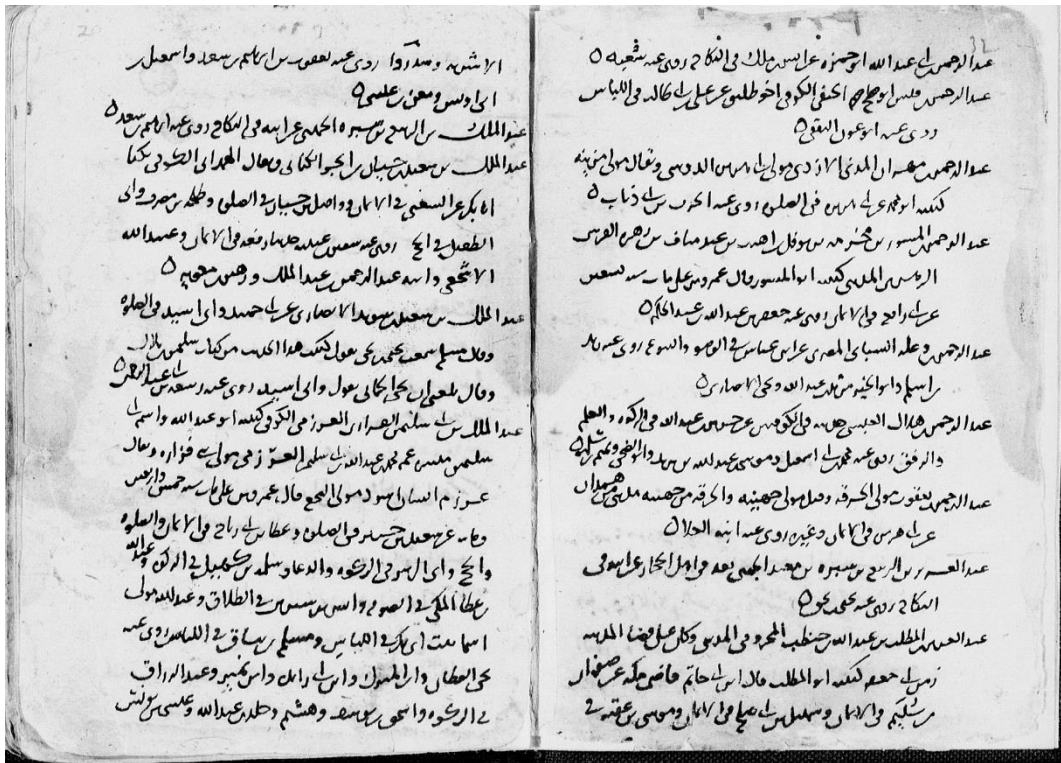 عبد الرحمن بن ابي عبد الله ابو حمزه عن انس بن ملك في النكاح روى عنه شعبه ه
عبد الرحمن بن قيس ابو صالح الحنفي الكوفي اخو طليق عن علي بن ابي طالب في اللباس
روى عنه ابو عون الثقفي ه
عبد الرحمن بن مهران المدني الازدي مولى ابي هريره الدوسي ويقال مولى مزينه
كنيته ابو محمد عن ابي هريره في الصلوه روى عنه الحرث بن ابي ذباب ه
عبد الرحمن بن المسور بن مخرمه بن نوفل بن اهيب بن عبد مناف بن زهره القرشي
الزهري المدني كنيته ابو المسور قال عمرو بن علي مات سنه تسعين
عن ابي رافع في الايمان روى عنه جعفر بن عبد الله بن عبد الحكم ه
عبد الرحمن بن وعله السبائي المصري عن ابن عباس في الوضو والبيوع روى عنه زيد
بن اسلم وابو الخير مرثد بن عبد الله ويحيى الانصاري ه
عبد الرحمن بن هلال العبسي حديثه في الكوفيين عن جرير بن عبد الله في الزكوه والعلم
والرفق روى عنه محمد بن ابي اسمعيل وموسى بن عبد الله بن يزيد وابو الضحى وتميم بن سلمه ه
عبد الرحمن بن يعقوب مولى الحرقه وقيل مولى جهينه والحرقه من جهينه
عن ابي هريره في الايمان وغيره روى عنه ابنه العلا ه
عبد العزيز بن الربيع بن سبره بن معبد الجهني يعد في اهل الحجاز عن ابيه في
النكاح روى عنه
عبد العزيز بن المطلب بن عبد الله بن حنطب المخزومي المدني وكان على قضا المدينه
زمن ابي جعفر كنيته ابو المطلب قال ابن ابي حاتم قاضي مكه عن صفوان
بن سليم في الايمان وسهيل بن ابي صالح في الايمان وموسى بن عقبه في
الاشربه روى عنه يعقوب بن ابراهيم بن سعد واسمعيل بن
ابي اويس ومعن بن عيسى ه
عبد الملك بن الربيع بن سبره الجهني عن ابيه في النكاح روى عنه ابراهيم بن سعد ه
عبد الملك بن سعيد بن حيان بن ابجر الكناني ويقال الهمداني الكوفي يكنا
ابا بكر عن الشعبي في الايمان وواصل بن حيان في الصلوه وطلحه بن مصرف وابي
الطفيل في الحج روى عنه سفين بن عيينه في الايمان وعبيد الله
الاشجعي وابنه عبد الرحمن بن عبد الملك وزهير بن معويه ه
عبد الملك بن سعيد بن سويد الانصاري عن ابي حميد وابي اسيد في الصلوه
وقال مسلم سمعت يحيى بن يحيى يقول كتبت هذا الحديث من كتاب سليمن بن بلال
وقال بلغني ان يحيى الحماني يقول وابي اسيد روى عنه ربيعه بن ابي عبد الرحمن ه
عبد الملك بن ابي سليمن الفزاري العرزمي الكوفي كنيته ابو عبد الله واسم ابي
سليمن ميسره عم محمد بن عبد الله بن ابي سليمن العرزمي مولى بني فزاره ويقال
عرزم انسان اسود مولى النخع قال عمرو بن علي مات سنه خمس واربعين
ومايه عن سعيد بن جبير في الصلوه وعطا بن ابي رباح في الايمان والصلوه
والحج وابي الزبير في الزكوه والدعا وسلمه بن كهيل في الزكوه وعبد الله
بن عطا المكي في الصوم وانس بن سيرين في الطلاق وعبد الله مولى
اسما بنت ابي بكر في اللباس ومسلم بن يناق في اللباس روى عنه
يحيى القطان وابن المبارك وابن ابي زايده وابن نمير وعبد الرزاق
في الزكوه واسحق بن يوسف وهشيم وخالد بن عبد الله وعيسى بن يونس